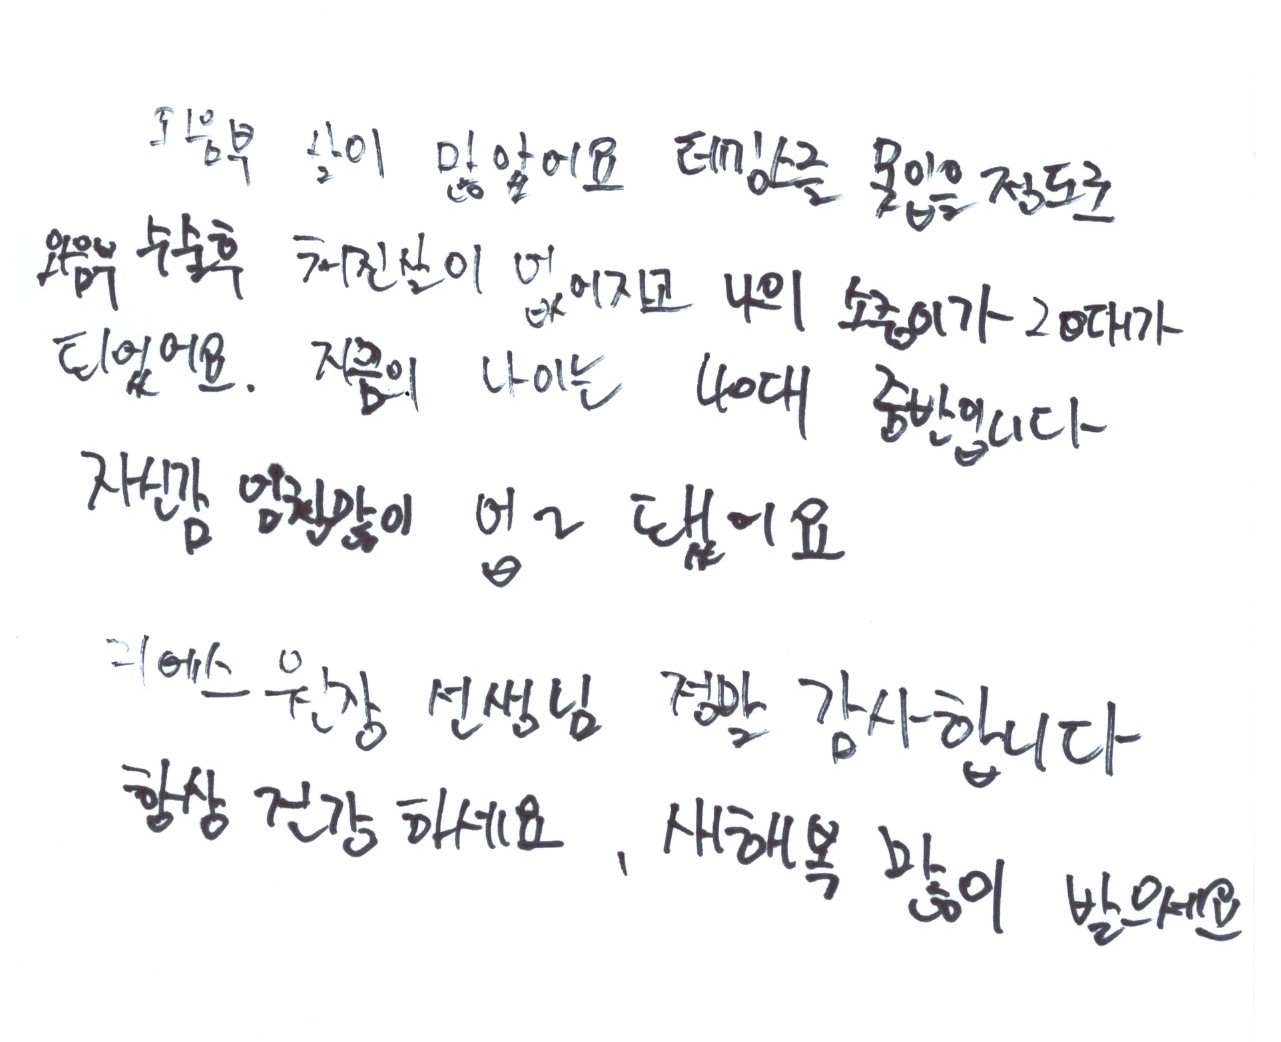 외음부 살이 많았어요 레깅스를 못입을 정도로
외음부 수술후 처진살이 없어지고 나의 소중이가 20대가
되었어요. 지금의 나이는 40대 중반입니다
자신감 엄청많이 업~ 됐어요
리에스 원장 선생님 정말 감사합니다
항상 건강 하세요, 새해복 많이 받으세요